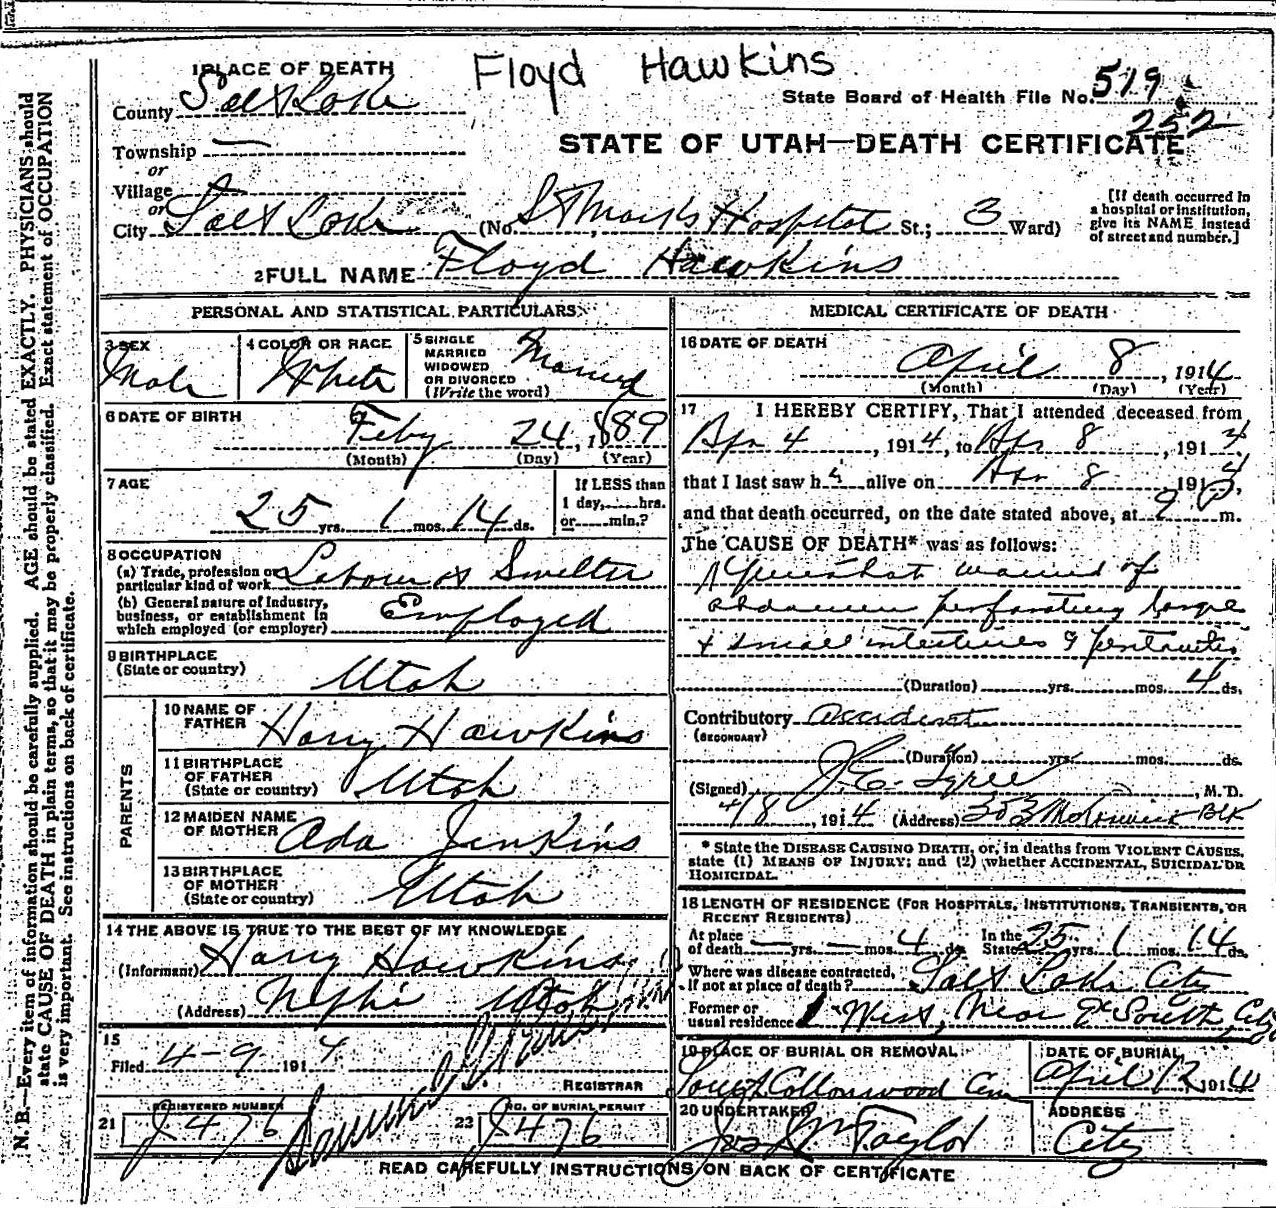 Floyd Hawkins
1 PLACE OF DEATH
County Salt Lake
State Board of Health File No. 519
252
Township —
or
Village —
or
City Salt Lake
STATE OF UTAH—DEATH CERTIFICATE
(No. St Marks Hospital St.; 3 Ward)
[If death occurred in a hospital or institution, give its NAME instead of street and number.]
2 FULL NAME Floyd Hawkins
PERSONAL AND STATISTICAL PARTICULARS
3 SEX Male
4 COLOR OR RACE White
5 SINGLE MARRIED WIDOWED OR DIVORCED (Write the word) Married
6 DATE OF BIRTH Feby 24, 1889
(Month) (Day) (Year)
7 AGE 25 yrs. 1 mos. 14 ds.
If LESS than 1 day, hrs. or min.?
8 OCCUPATION
(a) Trade, profession or particular kind of work Smelter
(b) General nature of Industry, business, or establishment in which employed (or employer) Employed
9 BIRTHPLACE (State or country) Utah
PARENTS
10 NAME OF FATHER Harry Hawkins
11 BIRTHPLACE OF FATHER (State or country) Utah
12 MAIDEN NAME OF MOTHER Ada Jenkins
13 BIRTHPLACE OF MOTHER (State or country) Utah
14 THE ABOVE IS TRUE TO THE BEST OF MY KNOWLEDGE
(Informant) Harry Hawkins
(Address) Nephi Utah
15
Filed 4-9 1914
REGISTRAR
21 REGISTERED NUMBER J 476
22 NO. OF BURIAL PERMIT J 476
MEDICAL CERTIFICATE OF DEATH
16 DATE OF DEATH
April 8, 1914
(Month) (Day) (Year)
17 I HEREBY CERTIFY, That I attended deceased from
Apr 4, 1914, to Apr 8, 1914
that I last saw h alive on Apr 8 1914,
and that death occurred, on the date stated above, at 9 P m.
The CAUSE OF DEATH* was as follows:
A Gunshot wound of
abdomen perforating large
+ small intestines & peritonitis
(Duration) yrs. mos. 4 ds.
Contributory accident
(SECONDARY)
(Duration) yrs. mos. ds.
(Signed) , M.D.
4/8, 1914 (Address) 303 McCornick Blk
* State the DISEASE CAUSING DEATH, or, in deaths from VIOLENT CAUSES, state (1) MEANS OF INJURY; and (2) whether ACCIDENTAL, SUICIDAL OR HOMICIDAL.
18 LENGTH OF RESIDENCE (FOR HOSPITALS, INSTITUTIONS, TRANSIENTS, OR RECENT RESIDENTS)
At place of death — yrs. — mos. 4 ds. In the State 25 yrs. 1 mos. 14 ds.
Where was disease contracted, If not at place of death? Salt Lake City
Former or usual residence West, Near South City
19 PLACE OF BURIAL OR REMOVAL Cottonwood Cem
DATE OF BURIAL April 12 1914
20 UNDERTAKER Jos Wm Taylor
ADDRESS City
READ CAREFULLY INSTRUCTIONS ON BACK OF CERTIFICATE
N. B.—Every item of information should be carefully supplied. AGE should be stated EXACTLY. PHYSICIANS should
state CAUSE OF DEATH in plain terms, so that it may be properly classified. Exact statement of OCCUPATION
is very important. See instructions on back of certificate.